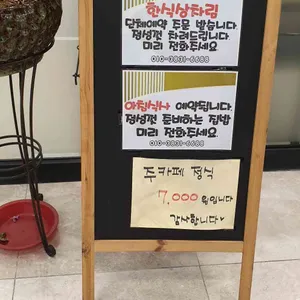 한식상차림
단체예약 주문 받습니다
정성껏 차려드립니다
미리 전화주세요
010-3831-6688
아침식사 예약됩니다
정성껏 준비하는 집밥
미리 전화주세요
010-3831-6688
뷔페 정식
7,000원입니다
감사합니다